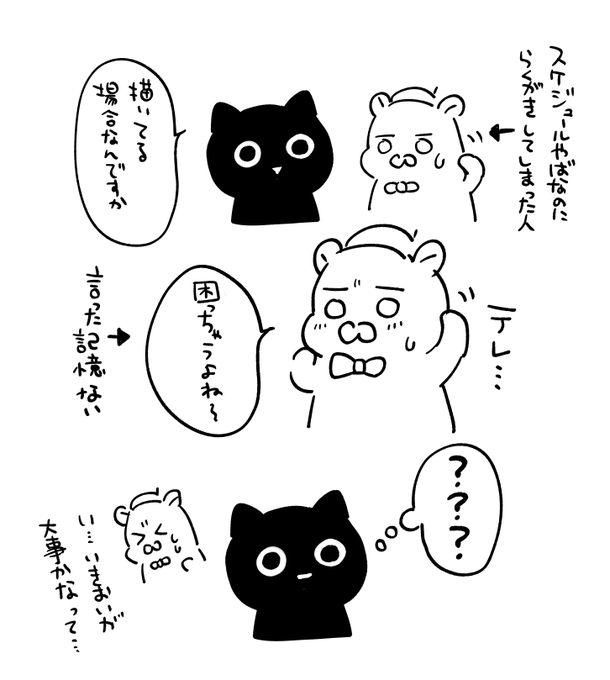 スケジュールやばなのに
らくがきしてしまった人
描いてる
場合なんですか
テレ…
困っちゃうよね〜
言った記憶ない
？？？
い…いきおいが
大事かなって…